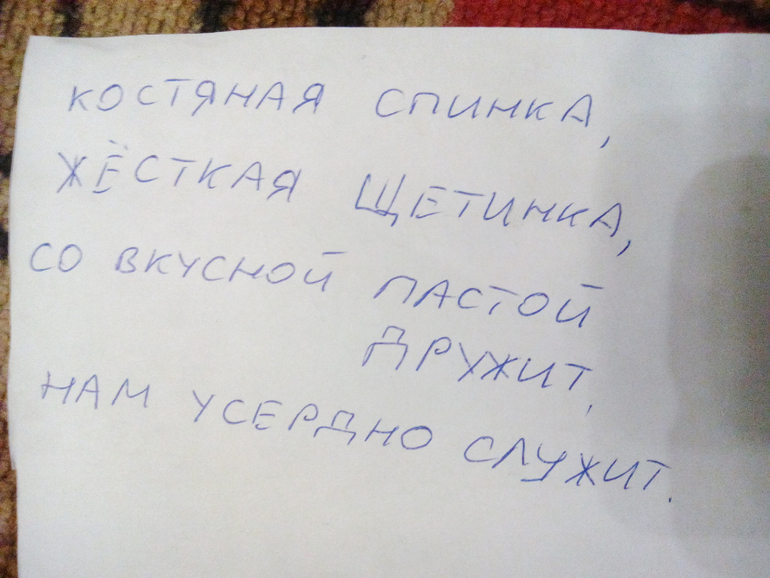 КОСТЯНАЯ СПИНКА,
ЖЁСТКАЯ ЩЕТИНКА,
СО ВКУСНОЙ ПАСТОЙ
ДРУЖИТ,
НАМ УСЕРДНО СЛУЖИТ.